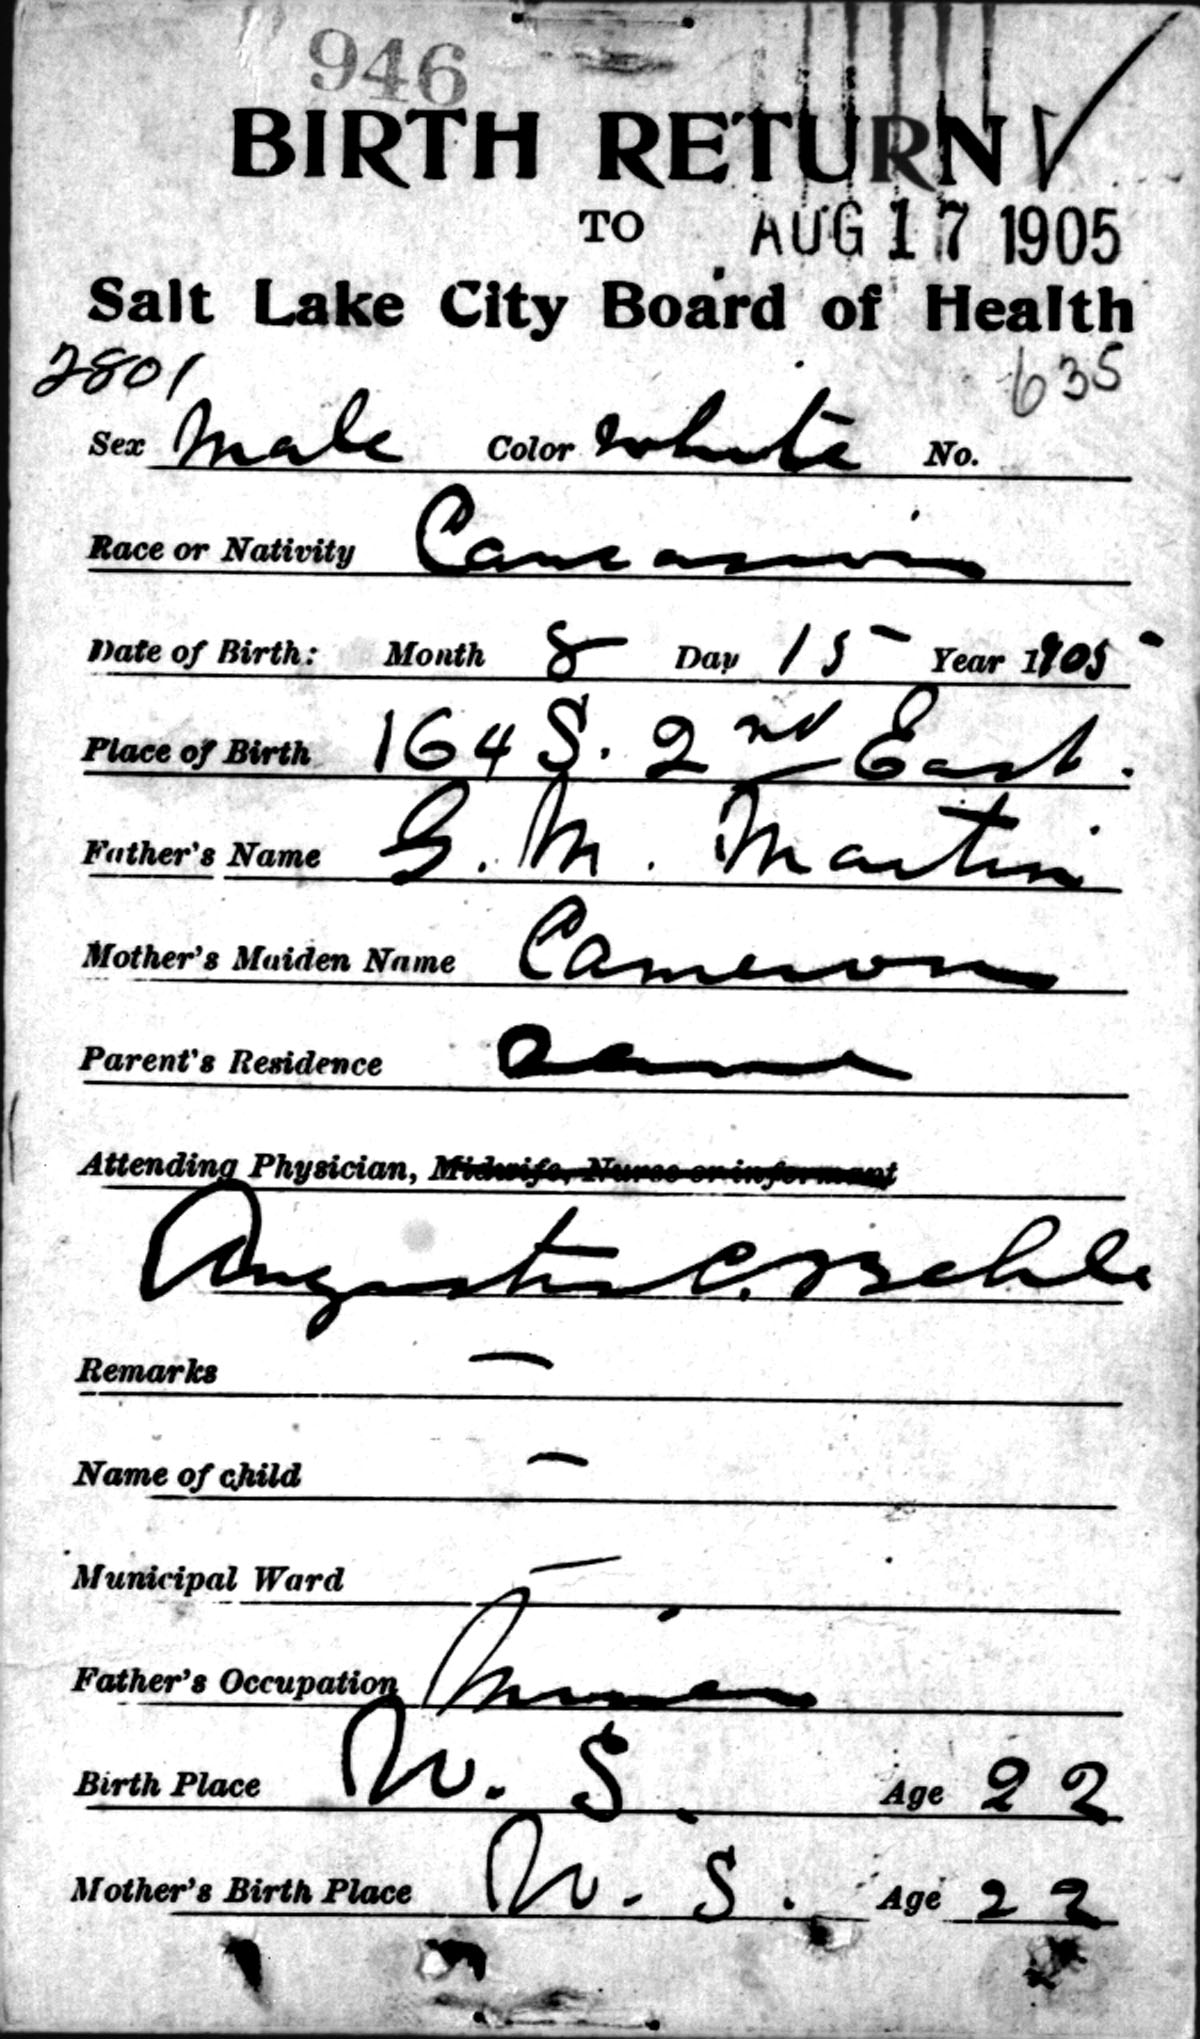 946
BIRTH RETURN
TO AUG 17 1905
Salt Lake City Board of Health
2801 635
Sex Male Color White No.
Race or Nativity Caucasian
Date of Birth: Month 8 Day 15 Year 1905
Place of Birth 164 S. 2nd East.
Father's Name G. M. Martin
Mother's Maiden Name Cameron
Parent's Residence Same
Attending Physician, Midwife, Nurse or informant
Augustus C. Behle
Remarks —
Name of child —
Municipal Ward —
Father's Occupation Miner
Birth Place U. S. Age 22
Mother's Birth Place U. S. Age 22